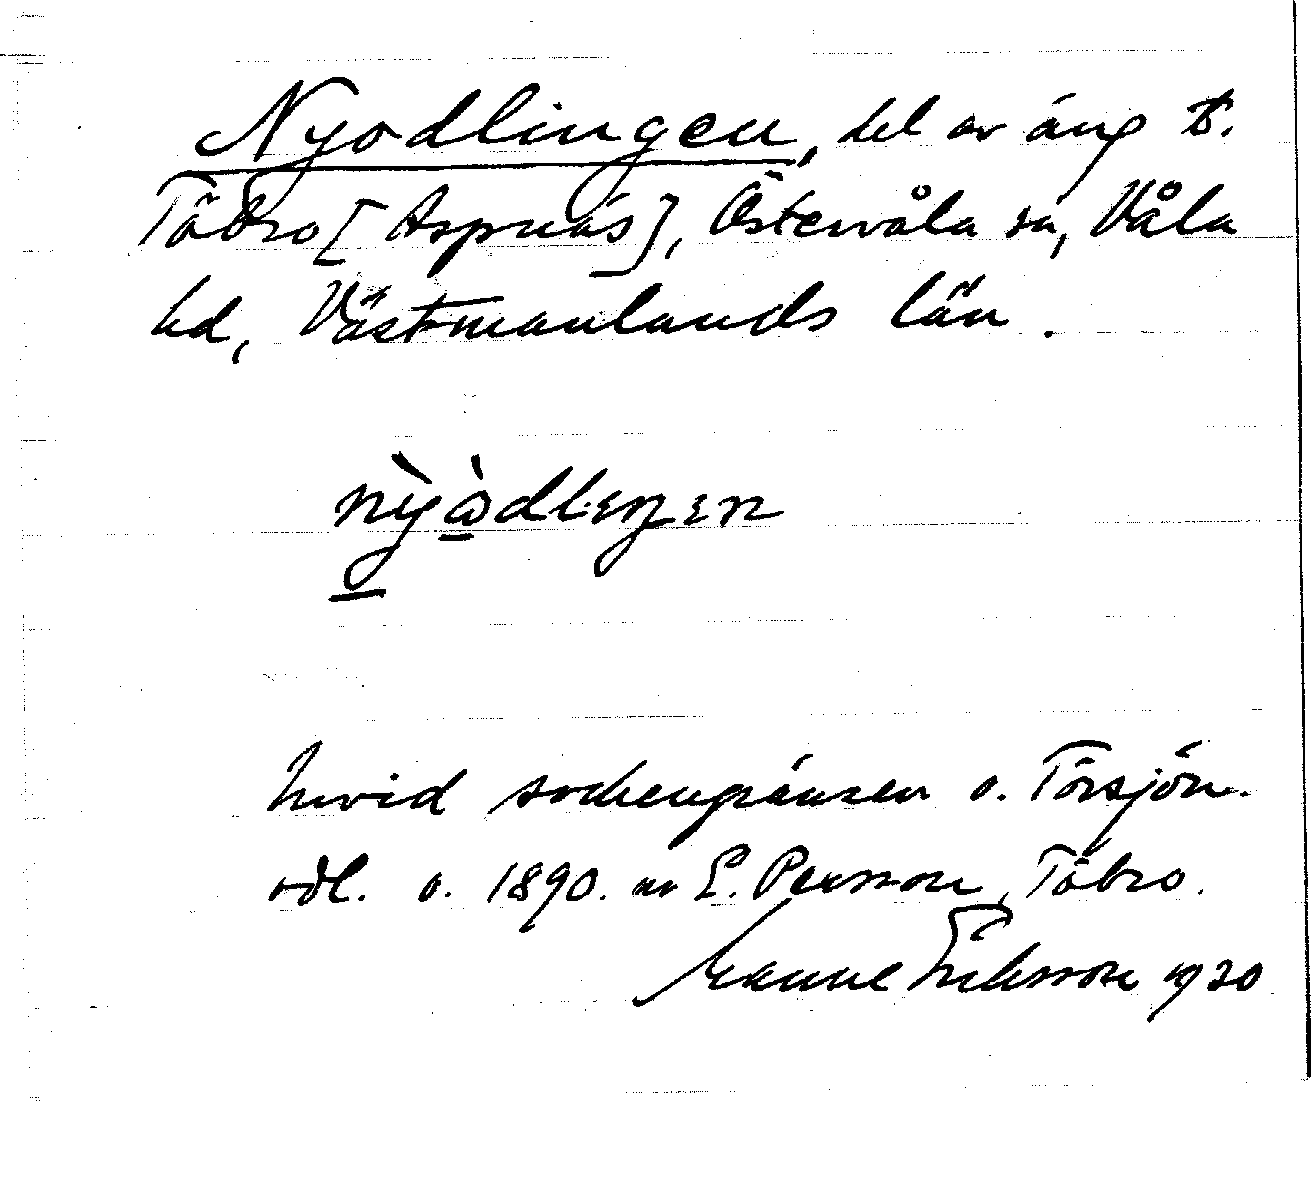 Nyodlingen, del av äng t.
Töbro [Aspnäs], Östervåla sn, Våla
hd, Västmanlands län.
nỳὼdlıŋən
Invid sockengränsen o. Törsjön.
odl. o. 1890. av E. Persson, Töbro.
Manne Eriksson 1920